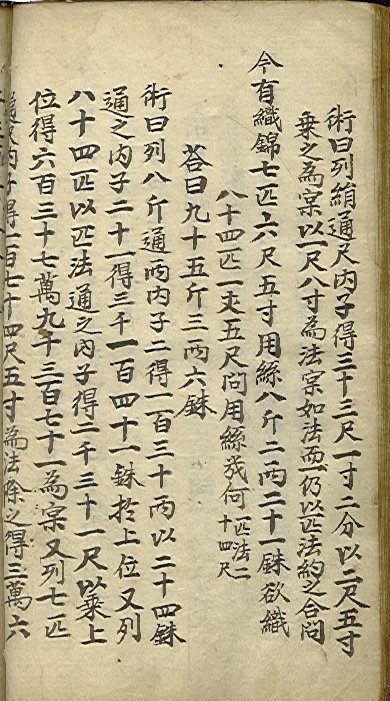 術曰列絹通尺內子得三十三尺一寸二分以二尺五寸
乗之為宲以一尺八寸為法宲如法而一仍以匹法約之合問
今有織錦七匹六尺五寸用絲八斤二兩二十一銖欲織
八十四匹一丈五尺問用絲幾何匹法二十四尺
荅曰九十五斤三兩六銖
術曰列八斤通兩內子二得一百三十兩以二十四銖
通之內子二十一得三千一百四十一銖於上位又列
八十四匹以匹法通之內子得二千三十一尺以乗上
位得六百三十七萬九千三百七十一為宲又列七匹
內子得一百七十四尺五寸為法除之得三萬六